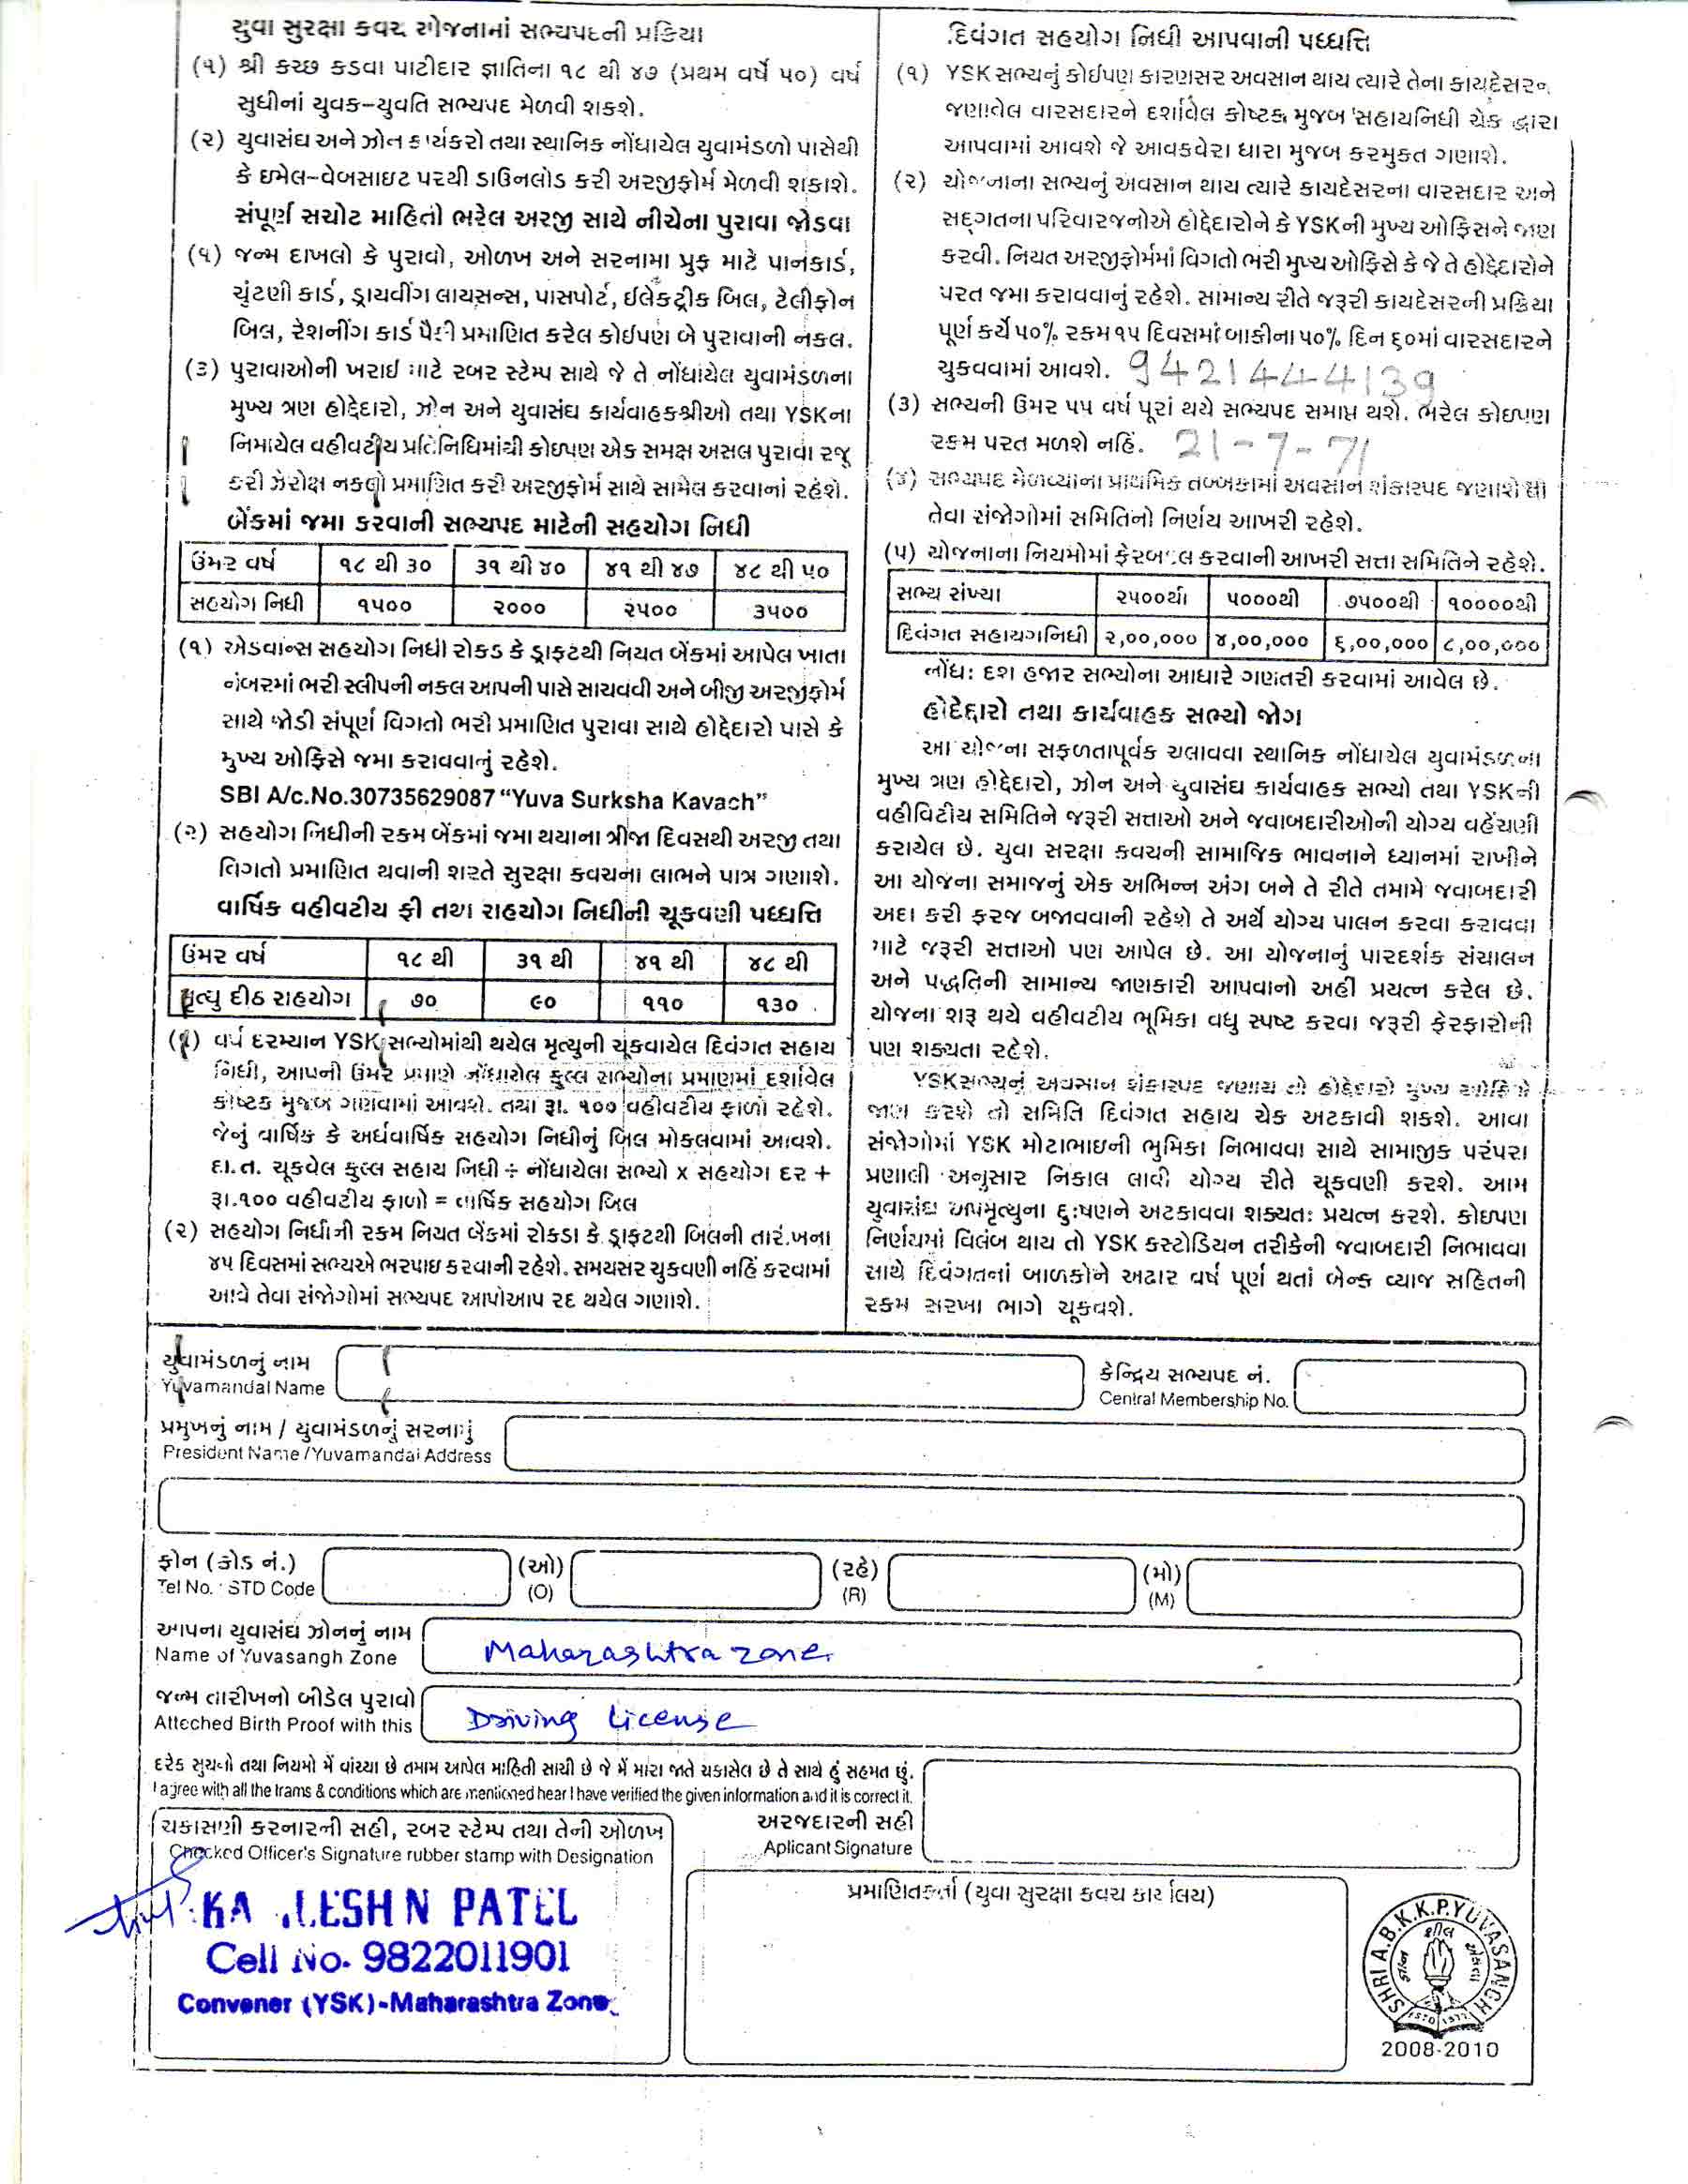 યુવા સુરક્ષા કવચ યોજનામાં સભ્યપદની પ્રક્રિયા
(૧) શ્રી કચ્છ કડવા પાટીદાર જ્ઞાતિના ૧૮ થી ૪૭ (પ્રથમ વર્ષે ૫૦) વર્ષ
સુધીનાં યુવક-યુવતિ સભ્યપદ મેળવી શકશે.
(૨) યુવાસંઘ અને ઝોન કાર્યકરો તથા સ્થાનિક નોંધાયેલ યુવામંડળો પાસેથી
કે ઇમેલ-વેબસાઇટ પરથી ડાઉનલોડ કરી અરજીફોર્મ મેળવી શકાશે.
સંપૂર્ણ સચોટ માહિતી ભરેલ અરજી સાથે નીચેના પુરાવા જોડવા
(૧) જન્મ દાખલો કે પુરાવો, ઓળખ અને સરનામા પ્રુફ માટે પાનકાર્ડ,
ચૂંટણી કાર્ડ, ડ્રાયવીંગ લાયસન્સ, પાસપોર્ટ, ઈલેકટ્રીક બિલ, ટેલીફોન
બિલ, રેશનીંગ કાર્ડ પૈકી પ્રમાણિત કરેલ કોઈપણ બે પુરાવાની નકલ.
(૩) પુરાવાઓની ખરાઇ માટે રબર સ્ટેમ્પ સાથે જે તે નોંધાયેલ યુવામંડળના
મુખ્ય ત્રણ હોદ્દેદારો, ઝોન અને યુવાસંઘ કાર્યવાહકશ્રીઓ તથા YSKના
નિમાયેલ વહીવટીય પ્રતિનિધિમાંથી કોઇપણ એક સમક્ષ અસલ પુરાવા રજૂ
કરી ઝેરોક્ષ નકલો પ્રમાણિત કરી અરજીફોર્મ સાથે સામેલ કરવાનાં રહેશે.
બેંકમાં જમા કરવાની સભ્યપદ માટેની સહયોગ નિધી
ઉંમર વર્ષ ૧૮ થી ૩૦ ૩૧ થી ૪૦ ૪૧ થી ૪૭ ૪૮ થી ૫૦
સહયોગ નિધી ૧૫૦૦ ૨૦૦૦ ૨૫૦૦ ૩૫૦૦
(૧) એડવાન્સ સહયોગ નિધી રોકડ કે ડ્રાફટથી નિયત બેંકમાં આપેલ ખાતા
નંબરમાં ભરી સ્લીપની નકલ આપની પાસે સાચવવી અને બીજી અરજીફોર્મ
સાથે જોડી સંપૂર્ણ વિગતો ભરી પ્રમાણિત પુરાવા સાથે હોદ્દેદારો પાસે કે
મુખ્ય ઓફિસે જમા કરાવવાનું રહેશે.
SBI A/c.No.30735629087 “Yuva Surksha Kavach”
(૨) સહયોગ નિધીની રકમ બેંકમાં જમા થયાના ત્રીજા દિવસથી અરજી તથા
વિગતો પ્રમાણિત થવાની શરતે સુરક્ષા કવચના લાભને પાત્ર ગણાશે.
વાર્ષિક વહીવટીય ફી તથા સહયોગ નિધીની ચૂકવણી પધ્ધતિ
ઉંમર વર્ષ ૧૮ થી ૩૧ થી ૪૧ થી ૪૮ થી
મૃત્યુ દીઠ સહયોગ ૭૦ ૯૦ ૧૧૦ ૧૩૦
(૧) વર્ષ દરમ્યાન YSK સભ્યોમાંથી થયેલ મૃત્યુની ચૂકવાયેલ દિવંગત સહાય
નિધી, આપની ઉંમર પ્રમાણે નોંધાયેલ કુલ્લ સભ્યોના પ્રમાણમાં દર્શાવેલ
કોષ્ટક મુજબ ગણવામાં આવશે. તથા રૂા. ૧૦૦ વહીવટીય ફાળો રહેશે.
જેનું વાર્ષિક કે અર્ધવાર્ષિક સહયોગ નિધીનું બિલ મોકલવામાં આવશે.
દા.ત. ચૂકવેલ કુલ્લ સહાય નિધી ÷ નોંધાયેલા સભ્યો x સહયોગ દર +
રૂા.૧૦૦ વહીવટીય ફાળો = વાર્ષિક સહયોગ બિલ
(૨) સહયોગ નિધીની રકમ નિયત બેંકમાં રોકડા કે ડ્રાફટથી બિલની તારીખના
૪૫ દિવસમાં સભ્યએ ભરપાઇ કરવાની રહેશે. સમયસર ચુકવણી નહિં કરવામાં
આવે તેવા સંજોગોમાં સભ્યપદ આપોઆપ રદ થયેલ ગણાશે.
દિવંગત સહયોગ નિધી આપવાની પધ્ધતિ
(૧) YSK સભ્યનું કોઈપણ કારણસર અવસાન થાય ત્યારે તેના કાયદેસરના
જણાવેલ વારસદારને દર્શાવેલ કોષ્ટક મુજબ સહાયનિધી ચેક દ્વારા
આપવામાં આવશે જે આવકવેરા ધારા મુજબ કરમુકત ગણાશે.
(૨) યોજનાના સભ્યનું અવસાન થાય ત્યારે કાયદેસરના વારસદાર અને
સદ્ગતના પરિવારજનોએ હોદ્દેદારોને કે YSKની મુખ્ય ઓફિસને જાણ
કરવી. નિયત અરજીફોર્મમાં વિગતો ભરી મુખ્ય ઓફિસે કે જે તે હોદ્દેદારોને
પરત જમા કરાવવાનું રહેશે. સામાન્ય રીતે જરૂરી કાયદેસરની પ્રક્રિયા
પૂર્ણ કર્યે ૫૦% રકમ ૧૫ દિવસમાં બાકીના ૫૦% દિન ૬૦માં વારસદારને
ચુકવવામાં આવશે. 9421444139
(૩) સભ્યની ઉમર ૫૫ વર્ષ પૂરાં થયે સભ્યપદ સમાપ્ત થશે. ભરેલ કોઇપણ
રકમ પરત મળશે નહિં. 21-7-71
(૪) સભ્યપદ મેળવ્યાના પ્રાથમિક તબક્કામાં અવસાન શંકાસ્પદ જણાશે તો
તેવા સંજોગોમાં સમિતિનો નિર્ણય આખરી રહેશે.
(૫) યોજનાના નિયમોમાં ફેરબદલ કરવાની આખરી સત્તા સમિતિને રહેશે.
સભ્ય સંખ્યા ૨૫૦૦થી ૫૦૦૦થી ૭૫૦૦થી ૧૦૦૦૦થી
દિવંગત સહાયગનિધી ૨,૦૦,૦૦૦ ૪,૦૦,૦૦૦ ૬,૦૦,૦૦૦ ૮,૦૦,૦૦૦
નોંધ: દશ હજાર સભ્યોના આધારે ગણતરી કરવામાં આવેલ છે.
હોદેદ્દારો તથા કાર્યવાહક સભ્યો જોગ
આ યોજના સફળતાપૂર્વક ચલાવવા સ્થાનિક નોંધાયેલ યુવામંડળના
મુખ્ય ત્રણ હોદ્દેદારો, ઝોન અને યુવાસંઘ કાર્યવાહક સભ્યો તથા YSKની
વહીવિટીય સમિતિને જરૂરી સત્તાઓ અને જવાબદારીઓની યોગ્ય વહેંચણી
કરાયેલ છે. યુવા સરક્ષા કવચની સામાજિક ભાવનાને ધ્યાનમાં રાખીને
આ યોજના સમાજનું એક અભિન્ન અંગ બને તે રીતે તમામે જવાબદારી
અદા કરી ફરજ બજાવવાની રહેશે તે અર્થે યોગ્ય પાલન કરવા કરાવવા
માટે જરૂરી સત્તાઓ પણ આપેલ છે. આ યોજનાનું પારદર્શક સંચાલન
અને પદ્ધતિની સામાન્ય જાણકારી આપવાનો અહીં પ્રયત્ન કરેલ છે.
યોજના શરૂ થયે વહીવટીય ભૂમિકા વધુ સ્પષ્ટ કરવા જરૂરી ફેરફારોની
પણ શક્યતા રહેશે.
YSK સભ્યનું અવસાન શંકાસ્પદ જણાય તો હોદ્દેદારો મુખ્ય ઓફિસે
જાણ કરશે તો સમિતિ દિવંગત સહાય ચેક અટકાવી શકશે. આવા
સંજોગોમાં YSK મોટાભાઇની ભુમિકા નિભાવવા સાથે સામાજીક પરંપરા
પ્રણાલી અનુસાર નિકાલ લાવી યોગ્ય રીતે ચૂકવણી કરશે. આમ
યુવાસંઘ અપમૃત્યુના દુઃષણને અટકાવવા શક્યતઃ પ્રયત્ન કરશે. કોઇપણ
નિર્ણયમાં વિલંબ થાય તો YSK કસ્ટોડિયન તરીકેની જવાબદારી નિભાવવા
સાથે દિવંગતનાં બાળકોને અઢાર વર્ષ પૂર્ણ થતાં બેન્ક વ્યાજ સહિતની
રકમ સરખા ભાગે ચૂકવશે.
યુવામંડળનું નામ
Yuvamandal Name
કેન્દ્રિય સભ્યપદ નં.
Central Membership No.
પ્રમુખનું નામ / યુવામંડળનું સરનામું
President Name /Yuvamandal Address
ફોન (કોડ નં.) (ઓ) (રહે) (મો)
Tel No. : STD Code (O) (R) (M)
આપના યુવાસંઘ ઝોનનું નામ
Name of Yuvasangh Zone
Maharashtra zone.
જન્મ તારીખનો બીડેલ પુરાવો
Atteched Birth Proof with this
Driving License
દરેક સુચનો તથા નિયમો મેં વાંચ્યા છે તમામ આપેલ માહિતી સાચી છે જે મેં મારા જાતે ચકાસેલ છે તે સાથે હું સહમત છું.
I agree with all the trams & conditions which are mentioned hear I have verified the given information and it is correct it.
અરજદારની સહી
Aplicant Signature
ચકાસણી કરનારની સહી, રબર સ્ટેમ્પ તથા તેની ઓળખ
Checked Officer's Signature rubber stamp with Designation
KA LESH N PATEL
Cell No. 9822011901
Convener (YSK)-Maharashtra Zone
પ્રમાણિતકર્તા (યુવા સુરક્ષા કવચ કાર્યાલય)
SHRI A.B.K.K.P.YUVASANGH
2008-2010